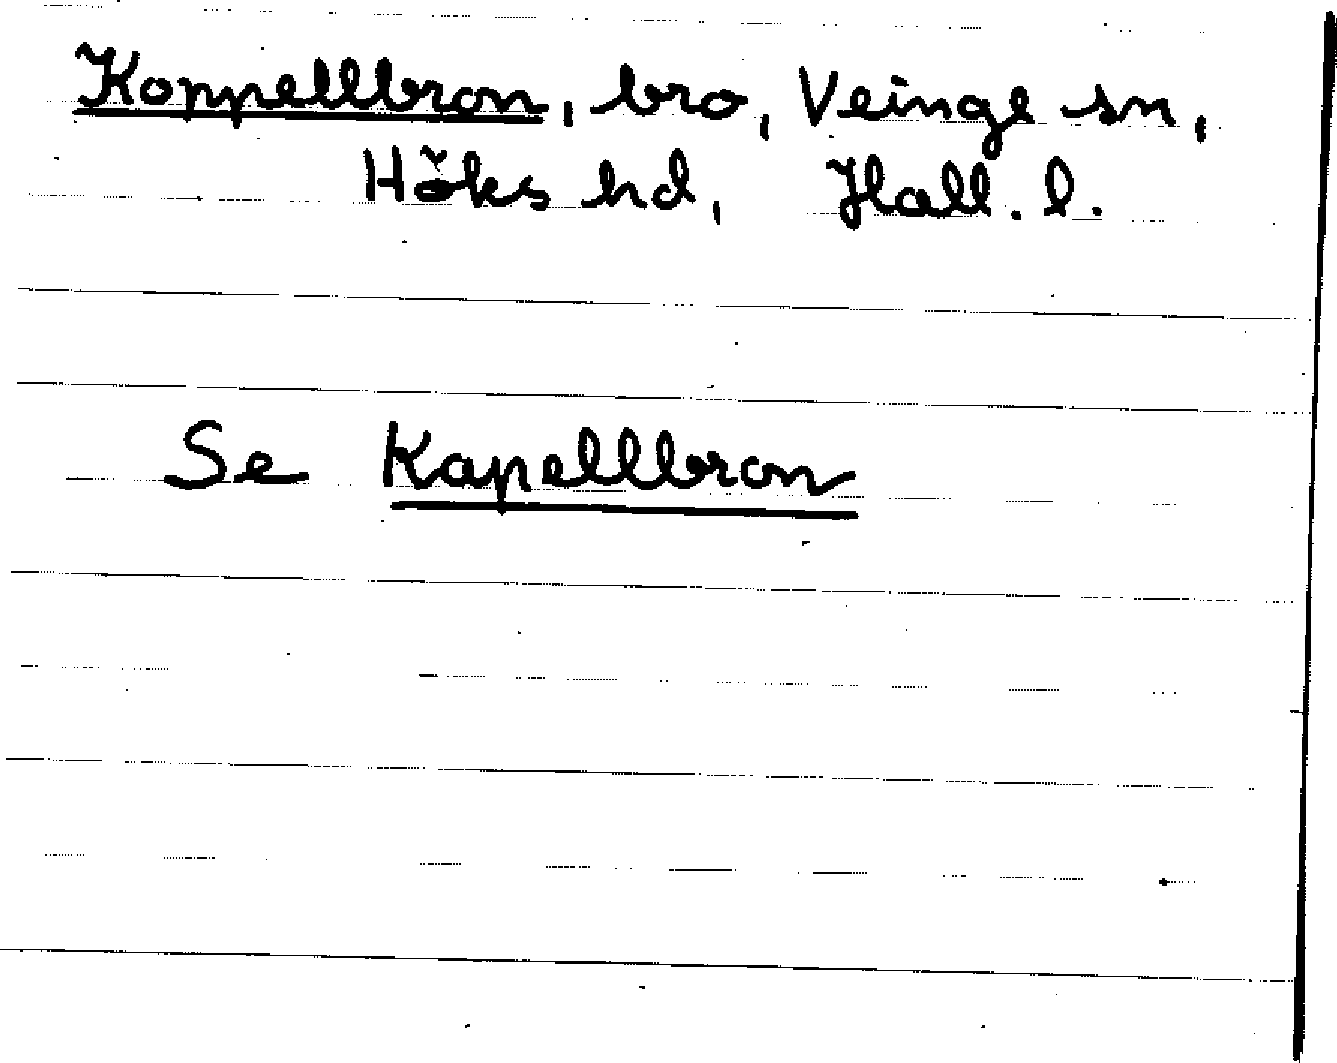 Koppellbron, bro, Veinge sn,
Höks hd, Hall. l.
Se Kapellbron